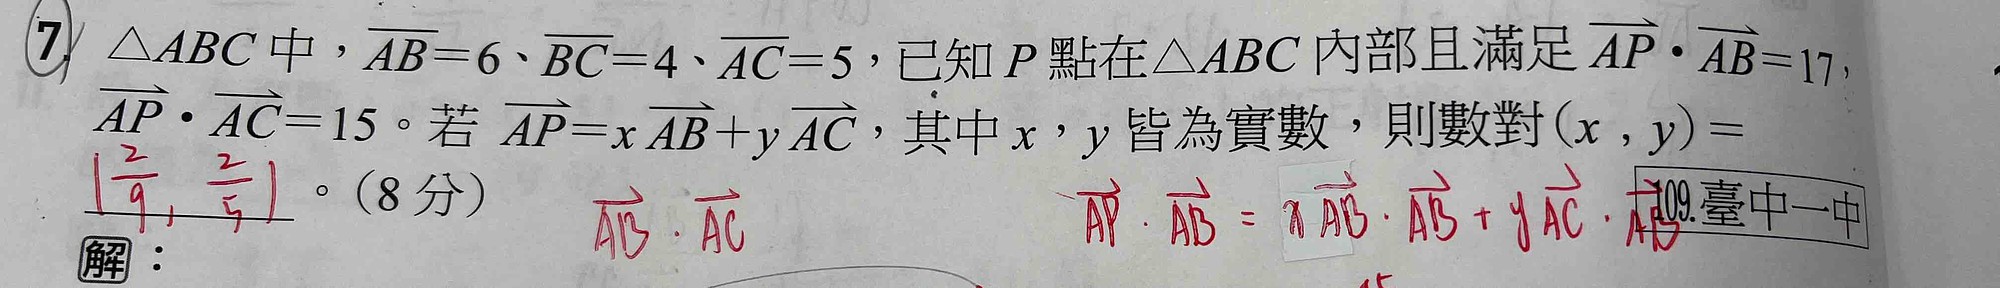 7. △ABC 中，AB=6、BC=4、AC=5，已知 P 點在△ABC 內部且滿足 AP・AB=17，
AP・AC=15。若 AP=xAB+yAC，其中 x，y 皆為實數，則數對(x , y)=
(2/9, 2/5)。（8 分）
AB・AC
AP・AB = xAB・AB + yAC・AB
109.臺中一中
解：